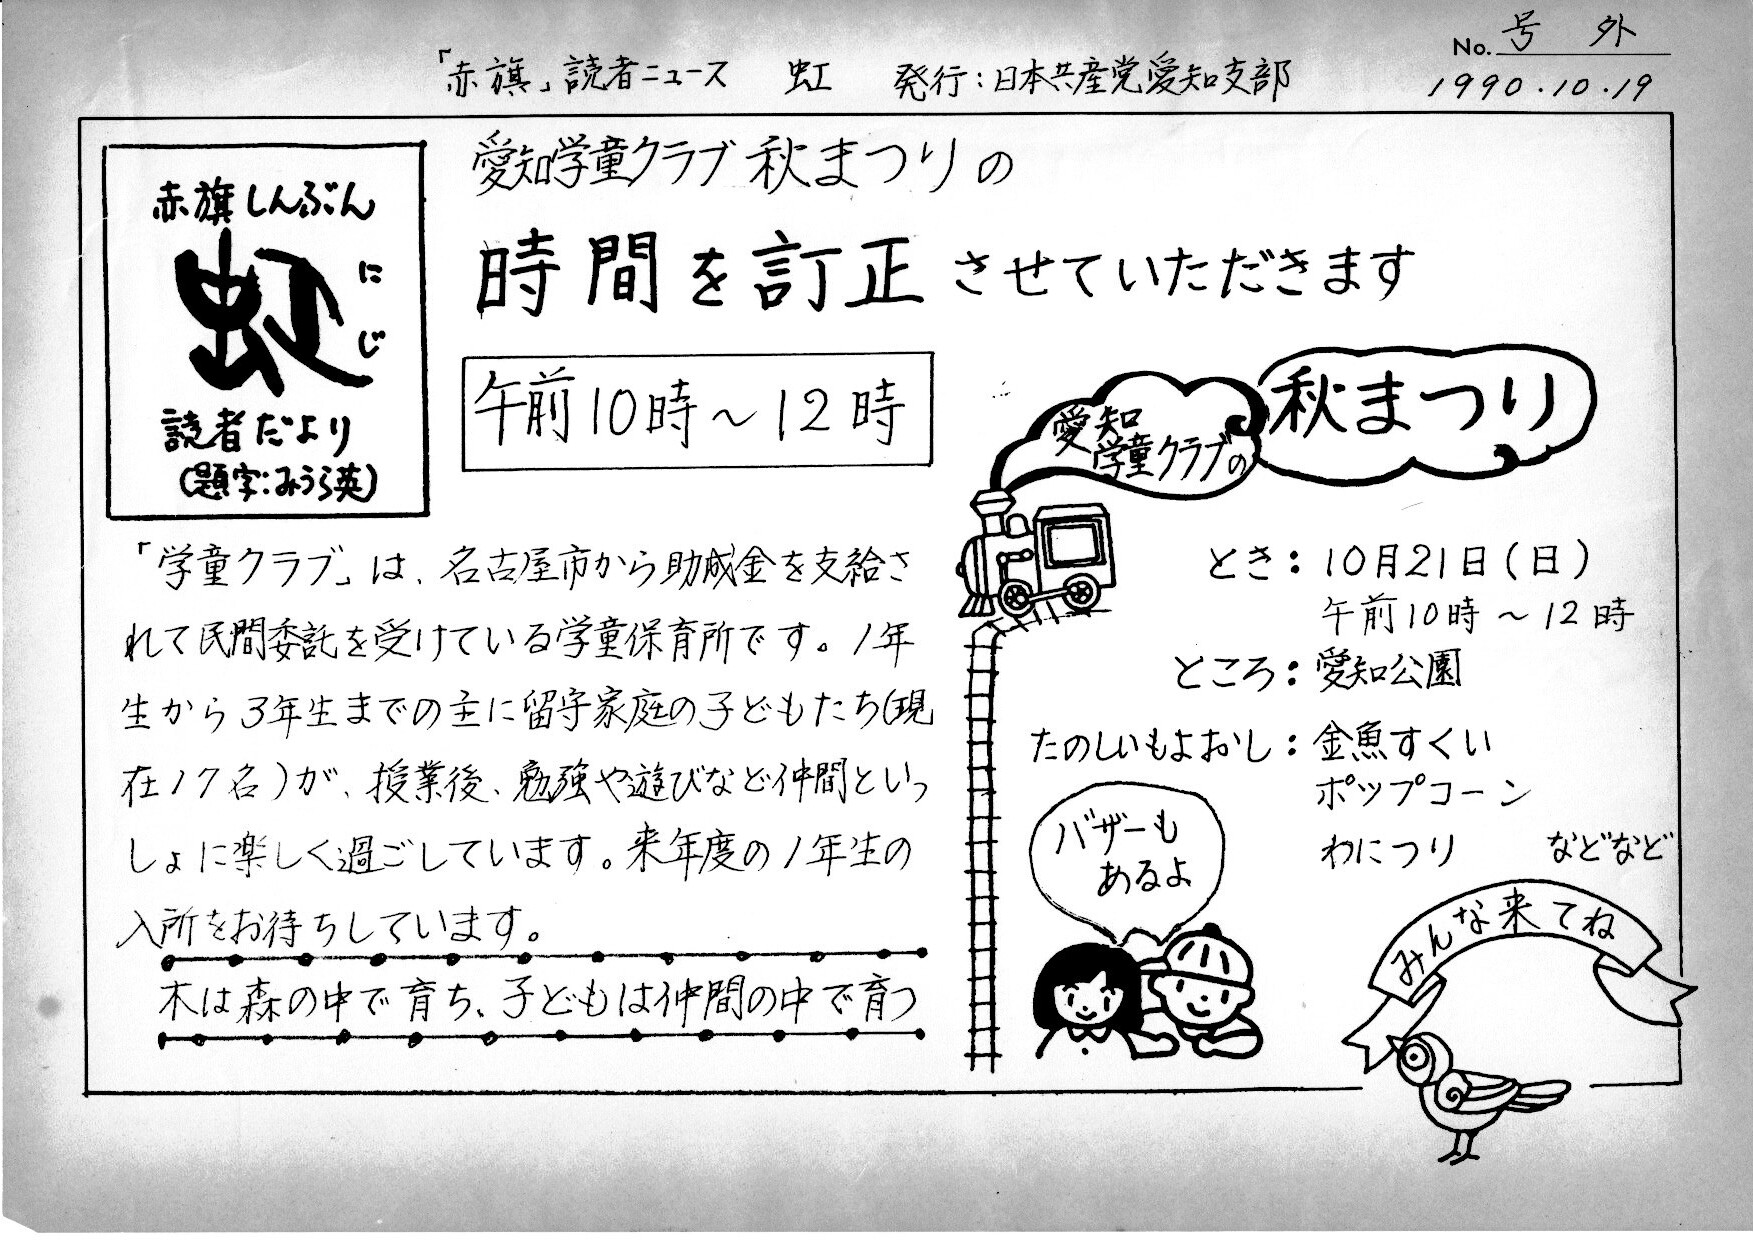 No. 号外
「赤旗」読者ニュース 虹 発行：日本共産党愛知支部
1990.10.19
赤旗しんぶん
虹
にじ
読者だより
(題字：みうら英)
愛知学童クラブ秋まつりの
時間を訂正させていただきます
午前10時～12時
「学童クラブ」は、名古屋市から助成金を支給さ
れて民間委託を受けている学童保育所です。1年
生から3年生までの主に留守家庭の子どもたち(現
在17名)が、授業後、勉強や遊びなど仲間といっ
しょに楽しく過ごしています。来年度の1年生の
入所をお待ちしています。
木は森の中で育ち、子どもは仲間の中で育つ
愛知
学童クラブの
秋まつり
とき：10月21日(日)
午前10時～12時
ところ：愛知公園
たのしいもよおし：金魚すくい
ポップコーン
わにつり などなど
バザーも
あるよ
みんな来てね